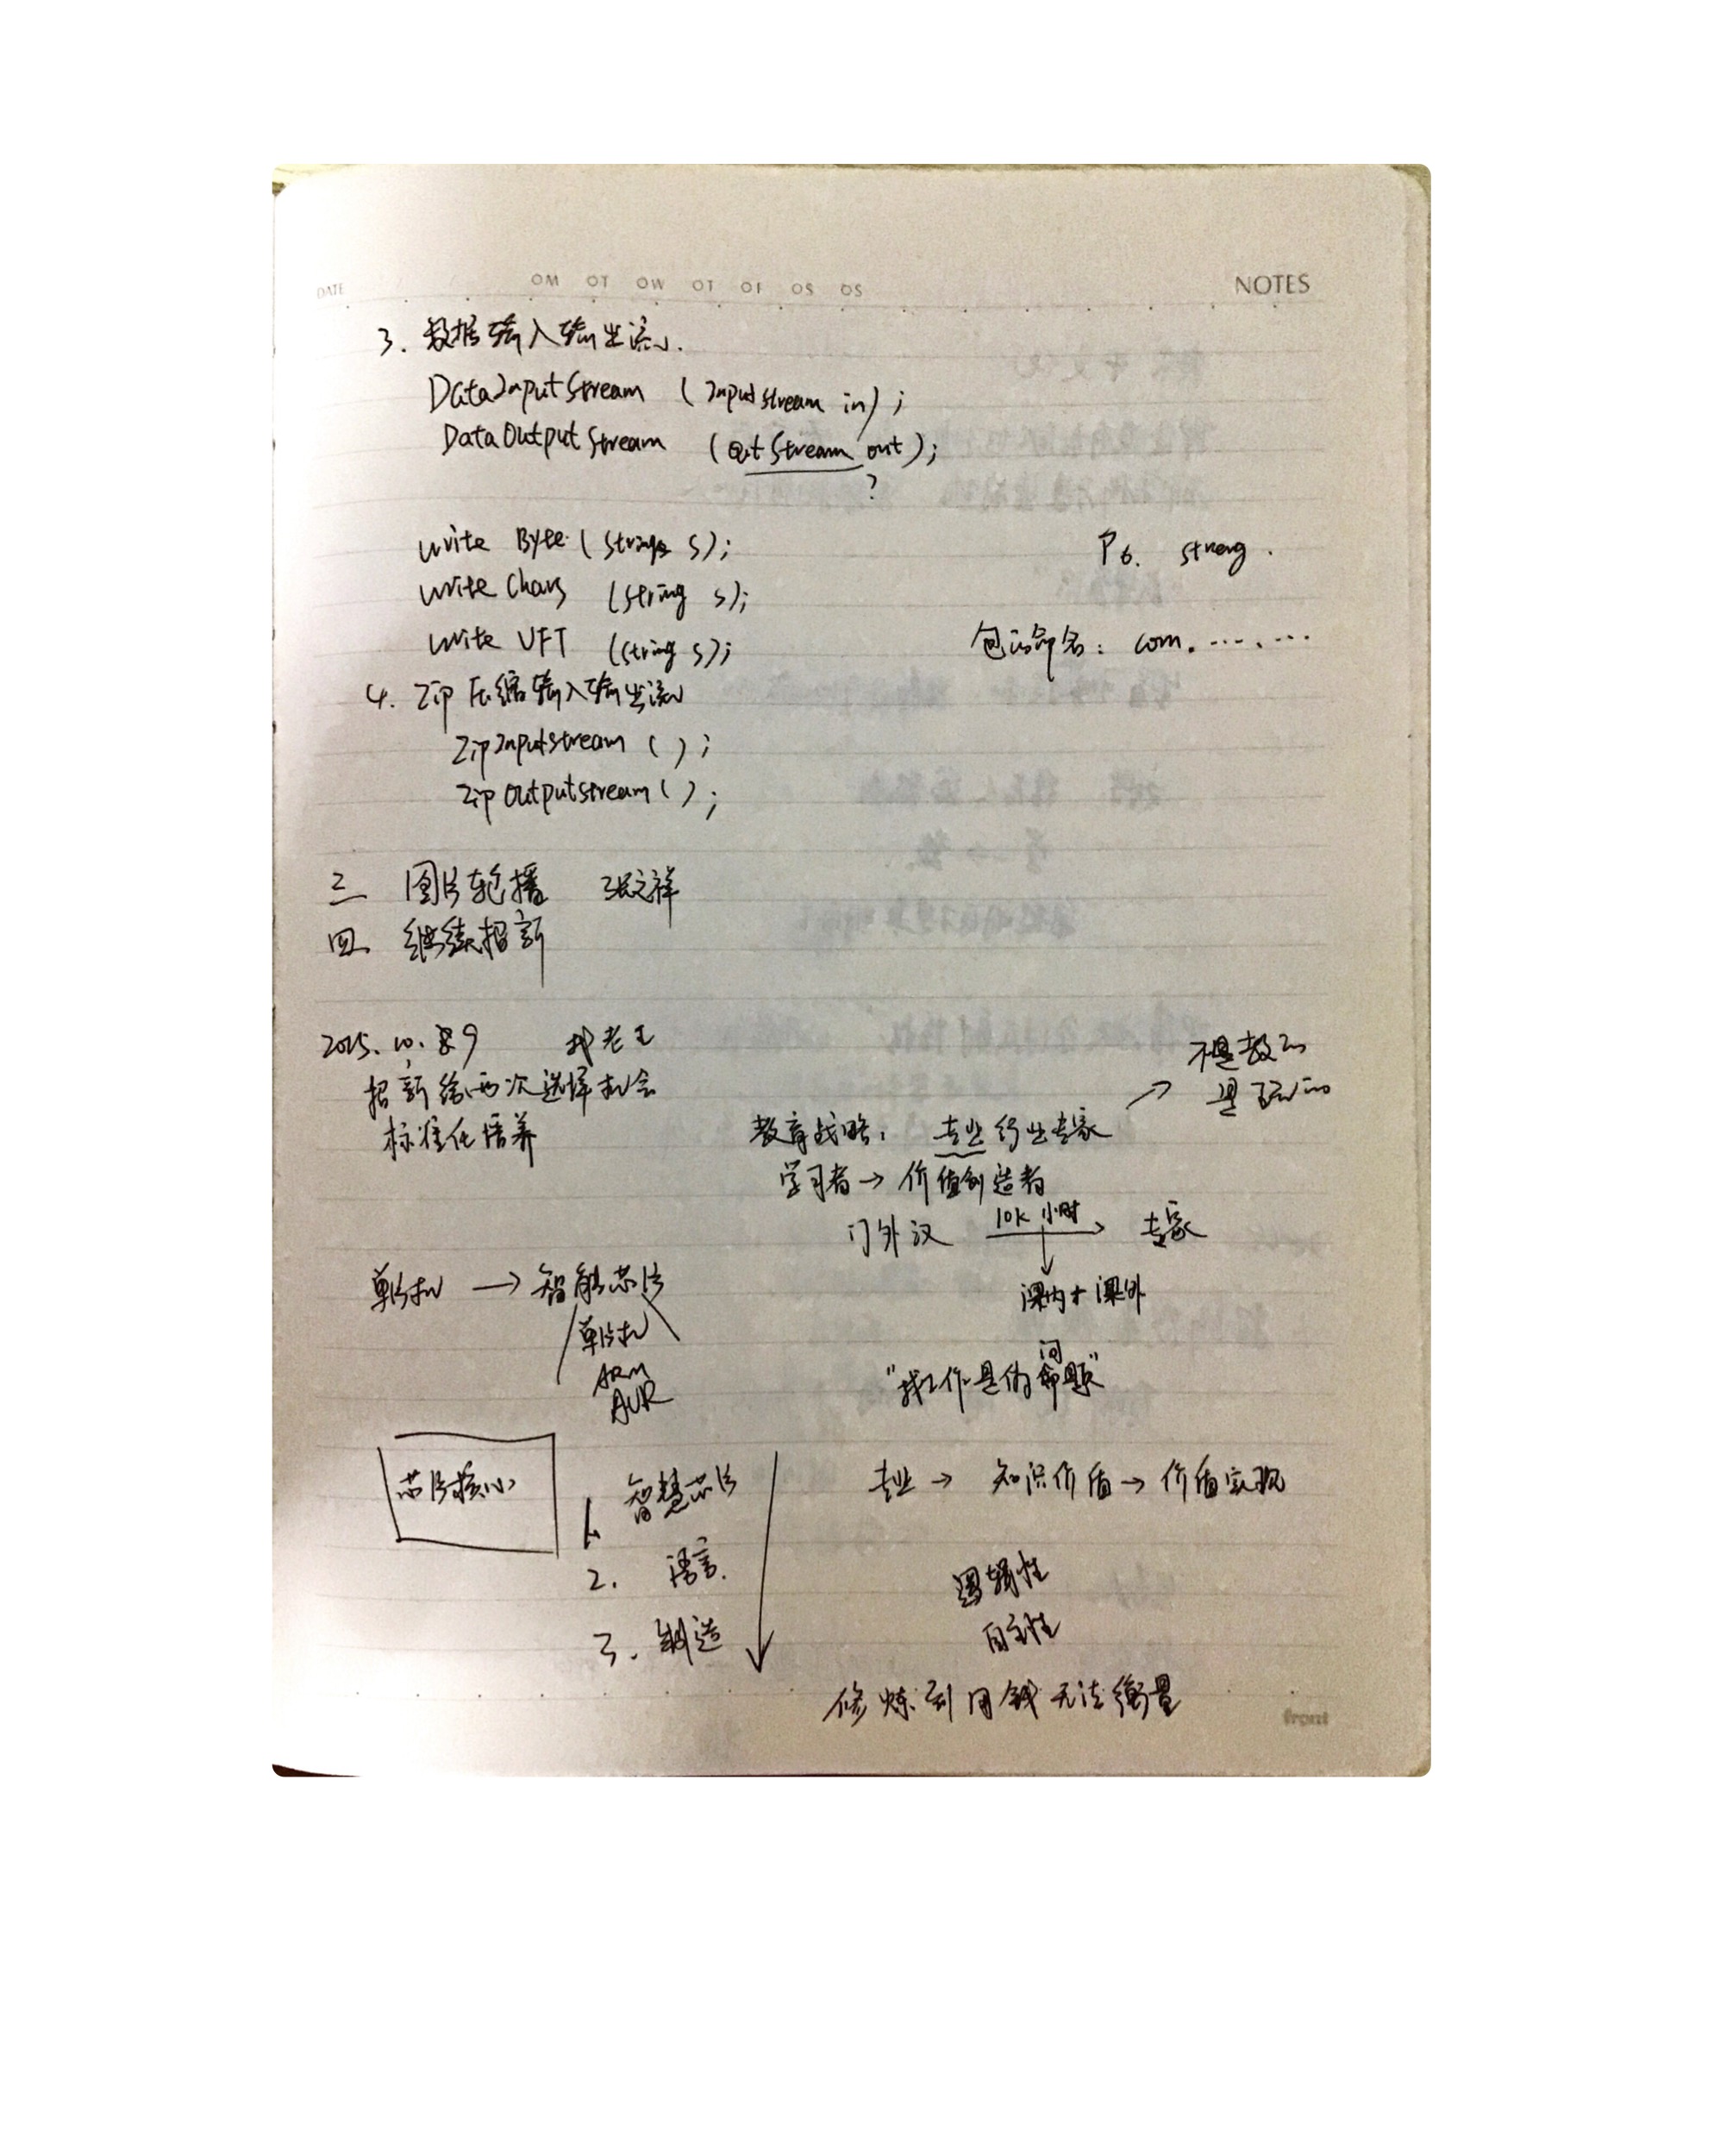 DATE
OM OT OW OT OF OS OS
NOTES
3. 数据输入输出流.
DataInputStream (Inputstream in);
DataOutputStream (OutStream out);
?
write Byte (String s);
write Chars (String s);
write UFT (String s);
P6. streng.
包的命名: com. ····. ···
4. Zip 压缩输入输出流
ZipInputstream ();
Zip Outputstream ();
三 图片轮播 张文祥
四 继续招新
2015.10.9
招新给两次选择机会
标准化培养
教育战略: 专业行业专家
→ 不是教的
是玩的
学习者→价值创造者
门外汉 10k 小时 专家
课内+课外
单片机 → 智能芯片
单片机
ARM
AVR
"找工作是伪问题"
芯片核心
1. 智慧芯片
2. 语言.
3. 制造
专业 → 知识价值 → 价值实现
逻辑性
自主性
修炼到用钱无法衡量
front